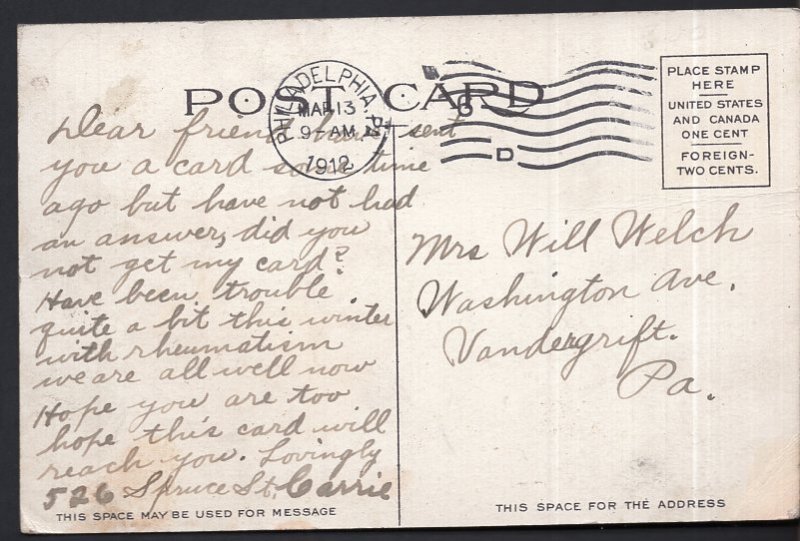 POST CARD
PHILADELPHIA, PA.
MAR 13
9-AM
1912
D
PLACE STAMP
HERE
UNITED STATES
AND CANADA
ONE CENT
FOREIGN-
TWO CENTS.
Dear friend sent
you a card some time
ago but have not had
an answer, did you
not get my card?
Have been trouble
quite a bit this winter
with rheumatism
we are all well now
Hope you are too
hope this card will
reach you. Lovingly
526 Spruce St. Carrie
THIS SPACE MAY BE USED FOR MESSAGE
Mrs Will Welch
Washington Ave.
Vandergrift.
Pa.
THIS SPACE FOR THE ADDRESS